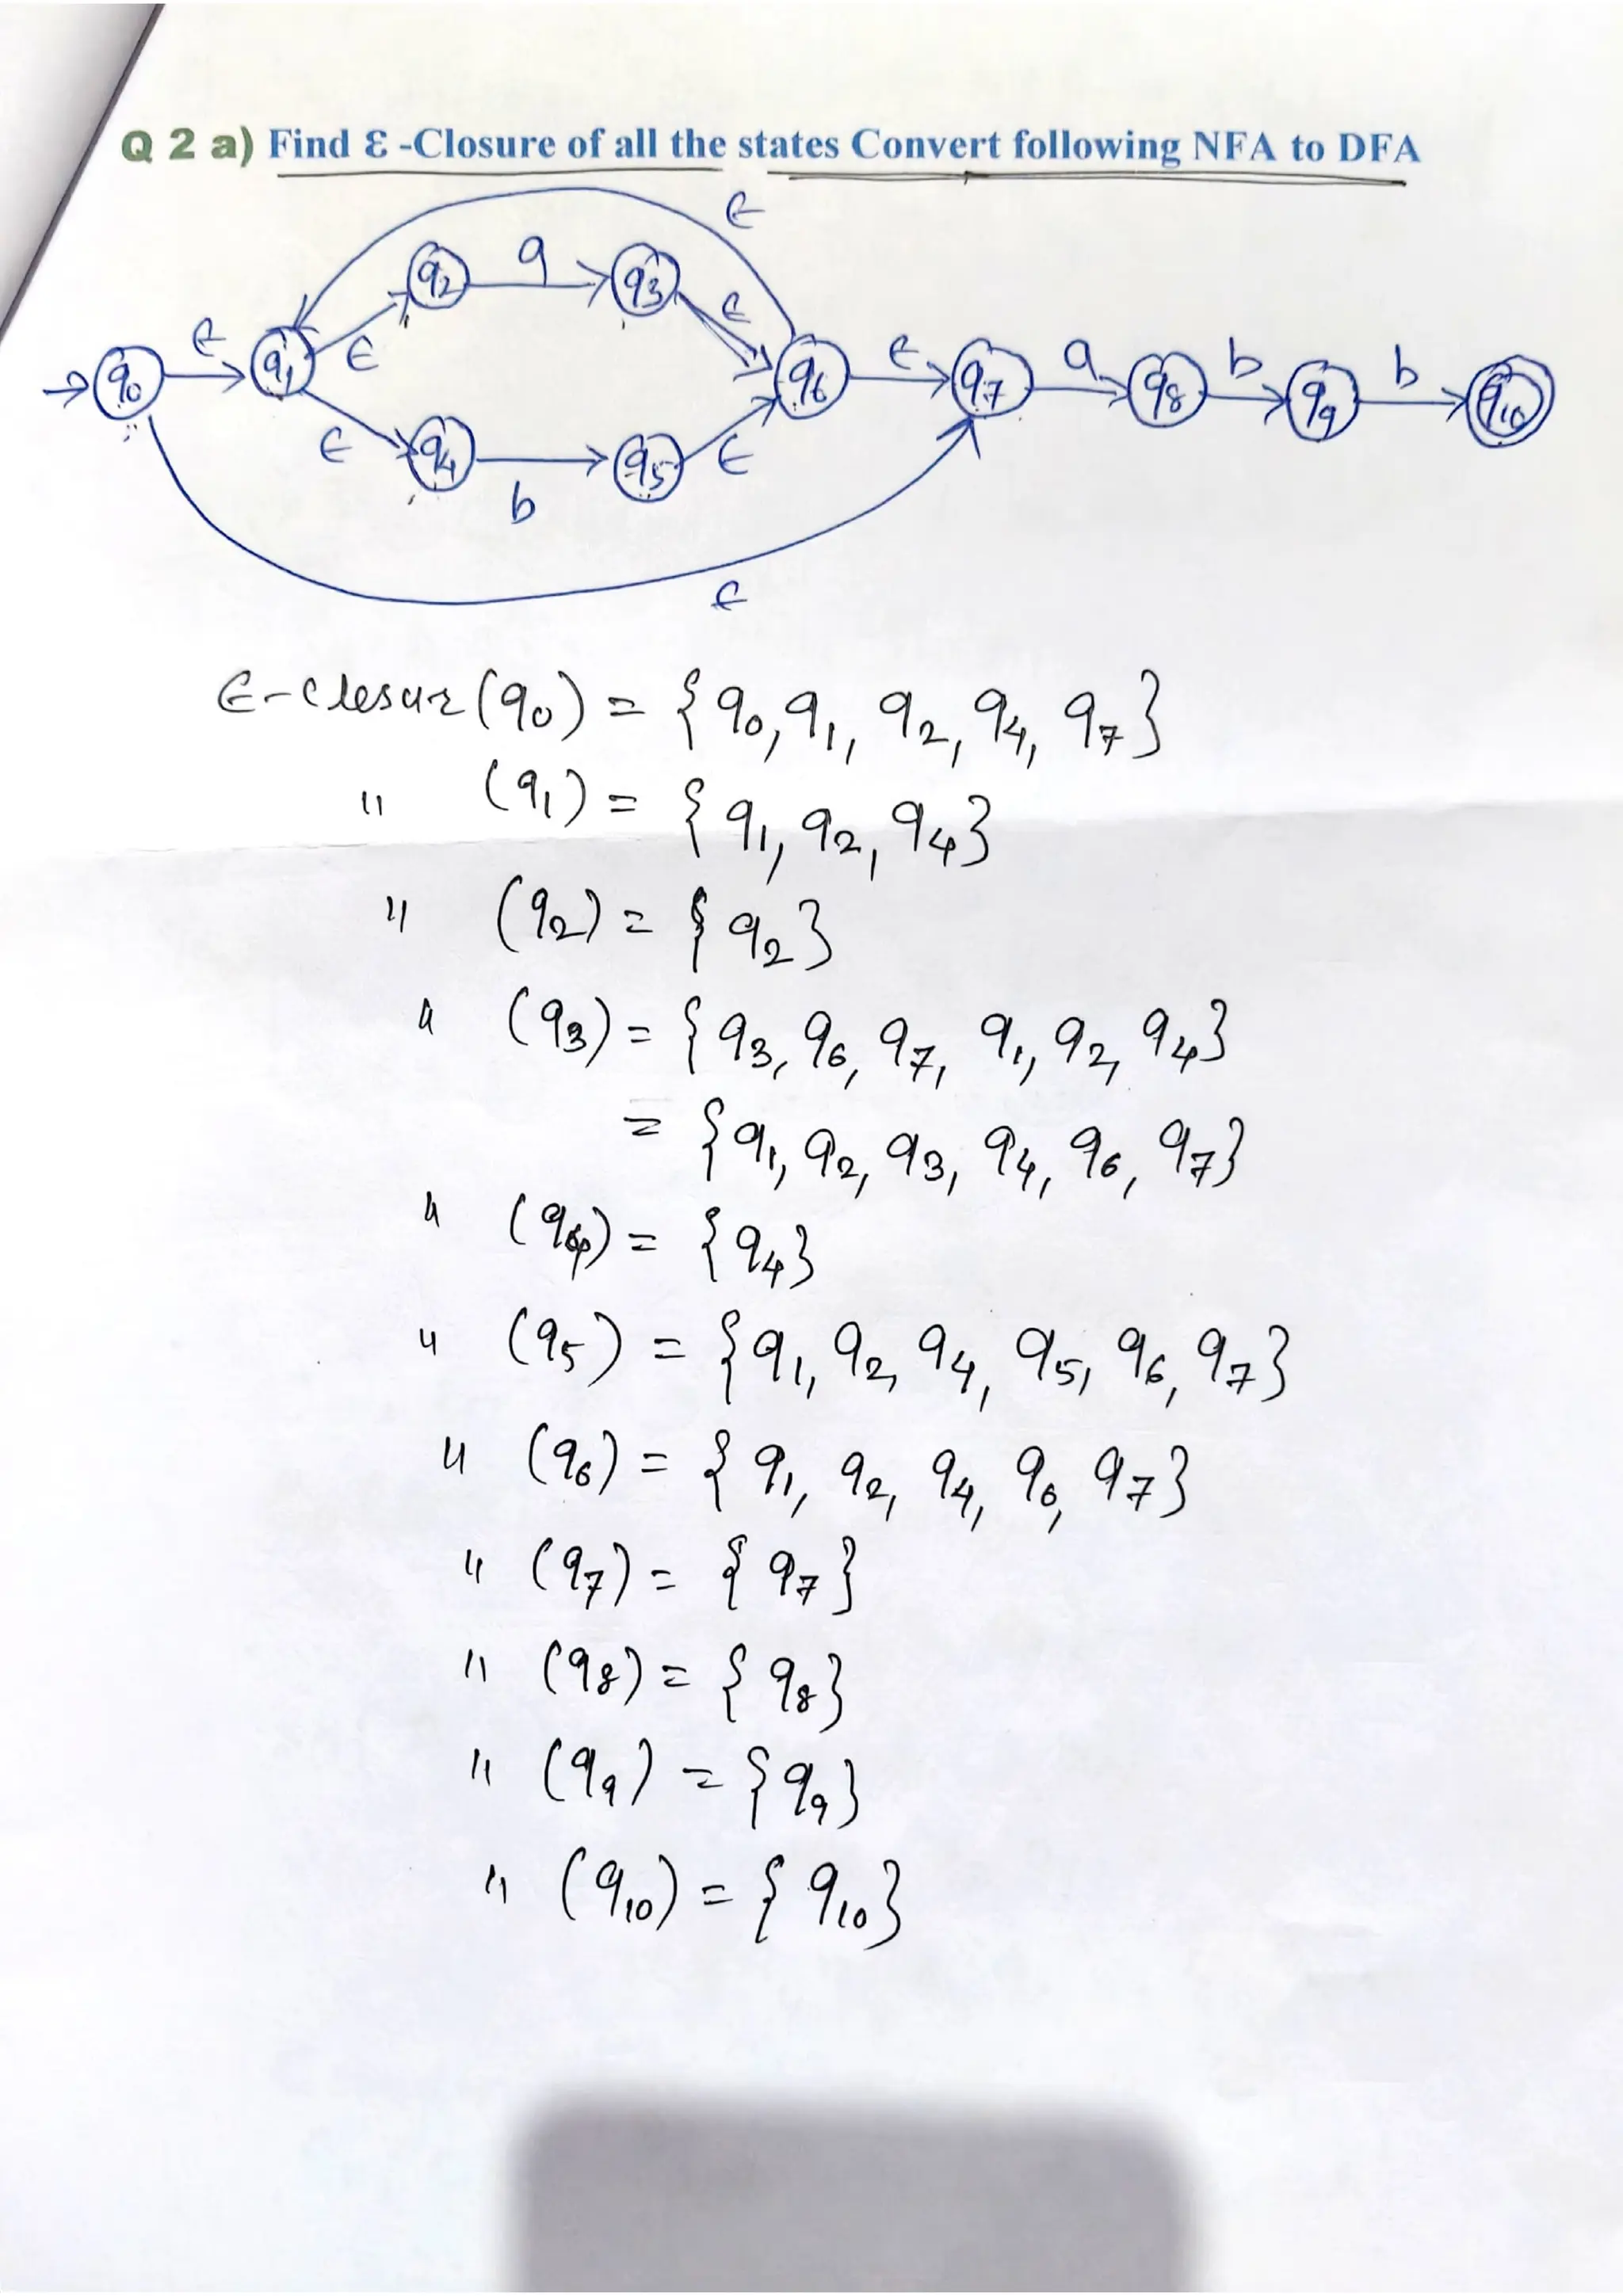 Q 2 a) Find Ɛ -Closure of all the states Convert following NFA to DFA
ϵ
q2 a q3
ϵ ϵ ϵ
q0 q1 q6 ϵ q7 a q8 b q9 b q10
ϵ q4 b q5 ϵ
ϵ
ϵ-closur (q0) = { q0, q1, q2, q4, q7 }
" (q1) = { q1, q2, q4 }
" (q2) = { q2 }
" (q3) = { q3, q6, q7, q1, q2, q4 }
= { q1, q2, q3, q4, q6, q7 }
" (q4) = { q4 }
" (q5) = { q1, q2, q4, q5, q6, q7 }
" (q6) = { q1, q2, q4, q6, q7 }
" (q7) = { q7 }
" (q8) = { q8 }
" (q9) = { q9 }
" (q10) = { q10 }